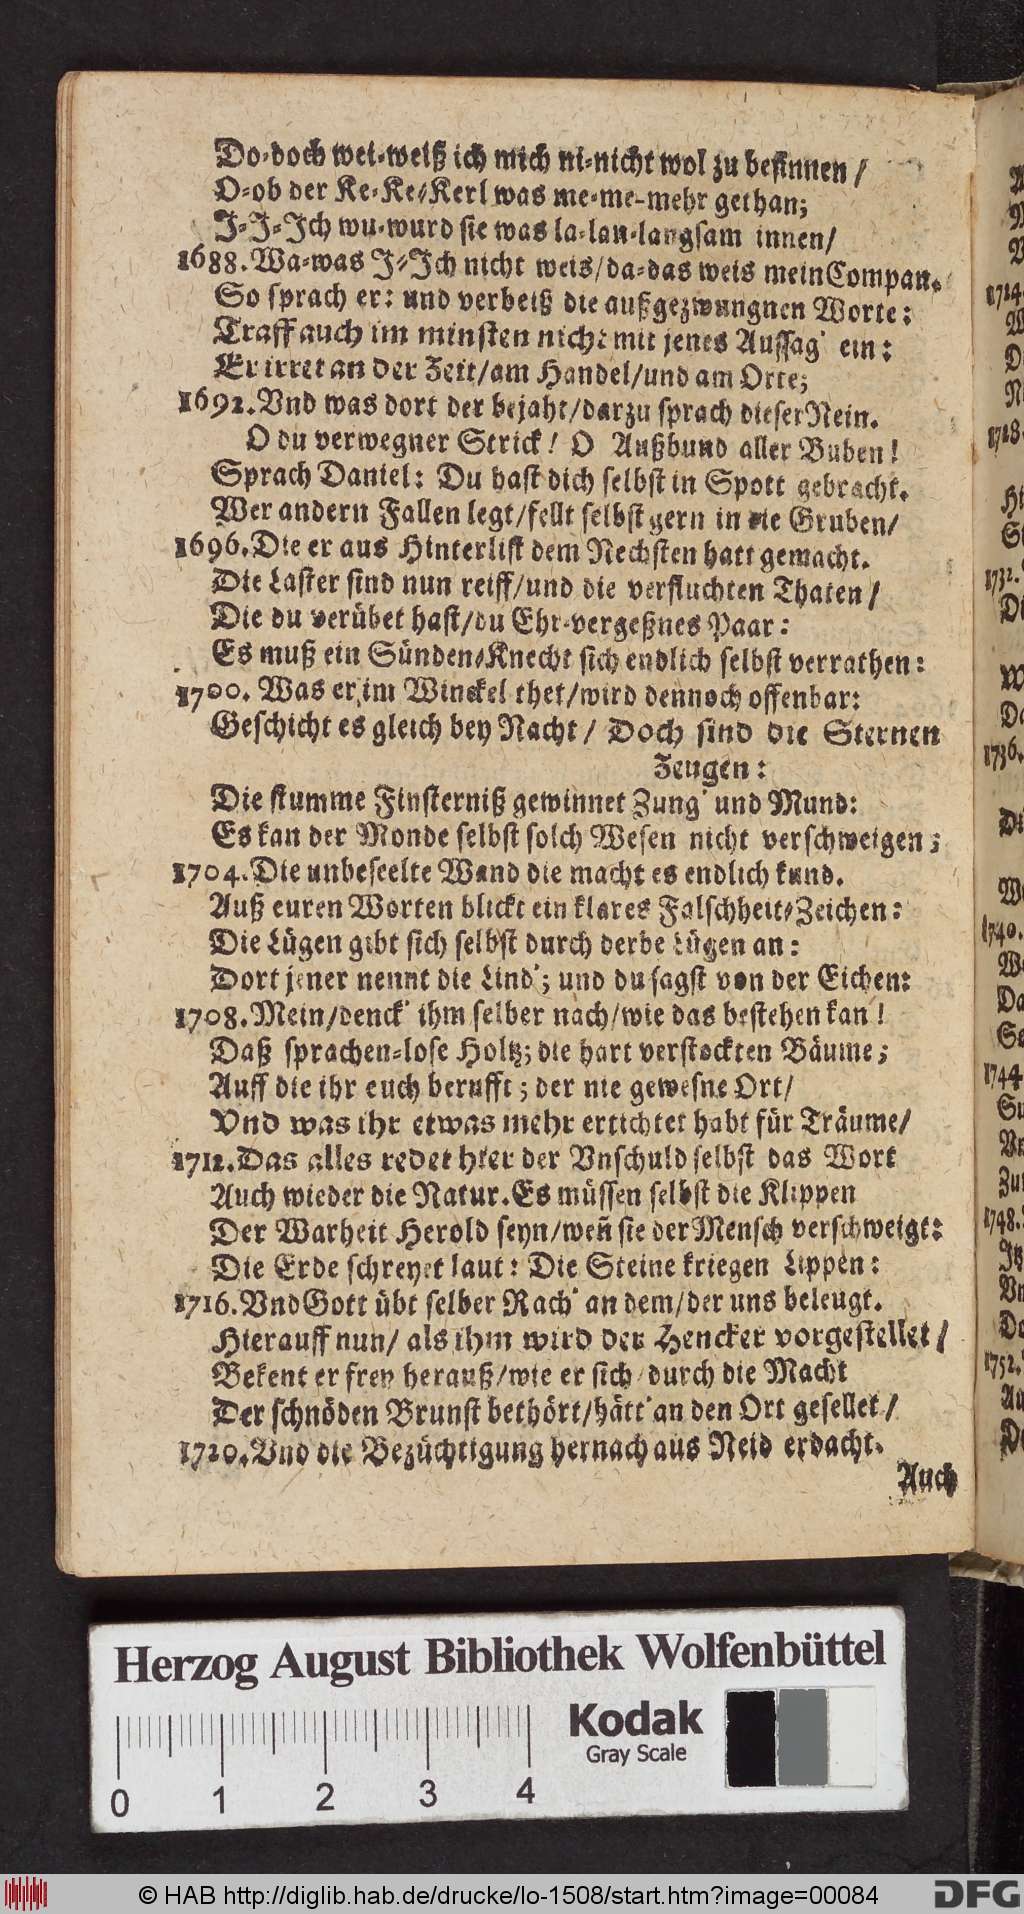 Do-doch wei-weiß ich mich ni-nicht wol zu besinnen /
O-ob der Ke-Ke-Kerl was me-me-mehr gethan;
J-J-Jch wu-wurd sie was la-lan-langsam innen/
1688. Wa-was J-Jch nicht weis/da-das weis mein Compan.
So sprach er: und verbeiß die außgezwungnen Worte:
Traff auch im minsten nicht mit jenes Aussag' ein:
Er irret an der Zeit/am Handel/und am Orte;
1692. Vnd was dort der bejaht/darzu sprach dieser Nein.
O du verwegner Strick! O Außbund aller Buben!
Sprach Daniel: Du hast dich selbst in Spott gebracht.
Wer andern Fallen legt/fellt selbst gern in die Gruben/
1696. Die er aus Hinterlist dem Nechsten hatt gemacht.
Die Laster sind nun reiff/und die verfluchten Thaten/
Die du verübet hast/du Ehr-vergeßnes Paar:
Es muß ein Sünden-Knecht sich endlich selbst verrathen:
1700. Was er im Winckel thet/wird dennoch offenbar:
Geschicht es gleich bey Nacht/ Doch sind die Sternen
Zeugen:
Die stumme Finsterniß gewinnet Zung' und Mund:
Es kan der Monde selbst solch Wesen nicht verschweigen;
1704. Die unbeseelte Wand die macht es endlich kund.
Auß euren Worten blickt ein klares Falschheit-Zeichen:
Die Lügen gibt sich selbst durch derbe Lügen an:
Dort jener nennt die Lind'; und du sagst von der Eichen:
1708. Mein/denck' ihm selber nach/wie das bestehen kan!
Daß sprachen-lose Holtz; die hart verstockten Bäume;
Auff die ihr euch berufft; der nie gewesne Ort/
Vnd was ihr etwas mehr ertichtet habt für Träume/
1712. Das alles redet hier der Vnschuld selbst das Wort
Auch wieder die Natur. Es müssen selbst die Klippen
Der Warheit Herold seyn/weñ sie der Mensch verschweigt:
Die Erde schreyet laut: Die Steine kriegen Lippen:
1716. Vnd Gott übt selber Rach' an dem/der uns beleugt.
Hierauff nun/ als ihm wird der Hencker vorgestellet/
Bekent er frey herauß/wie er sich/durch die Macht
Der schnöden Brunst bethört/hätt' an den Ort gesellet/
1720. Vnd die Bezüchtigung hernach aus Neid erdacht.
Auch
1714.
1718.
1732.
1736.
1740.
1744
1748.
1752.
Herzog August Bibliothek Wolfenbüttel
Kodak
Gray Scale
0 1 2 3 4
© HAB http://diglib.hab.de/drucke/lo-1508/start.htm?image=00084
DFG